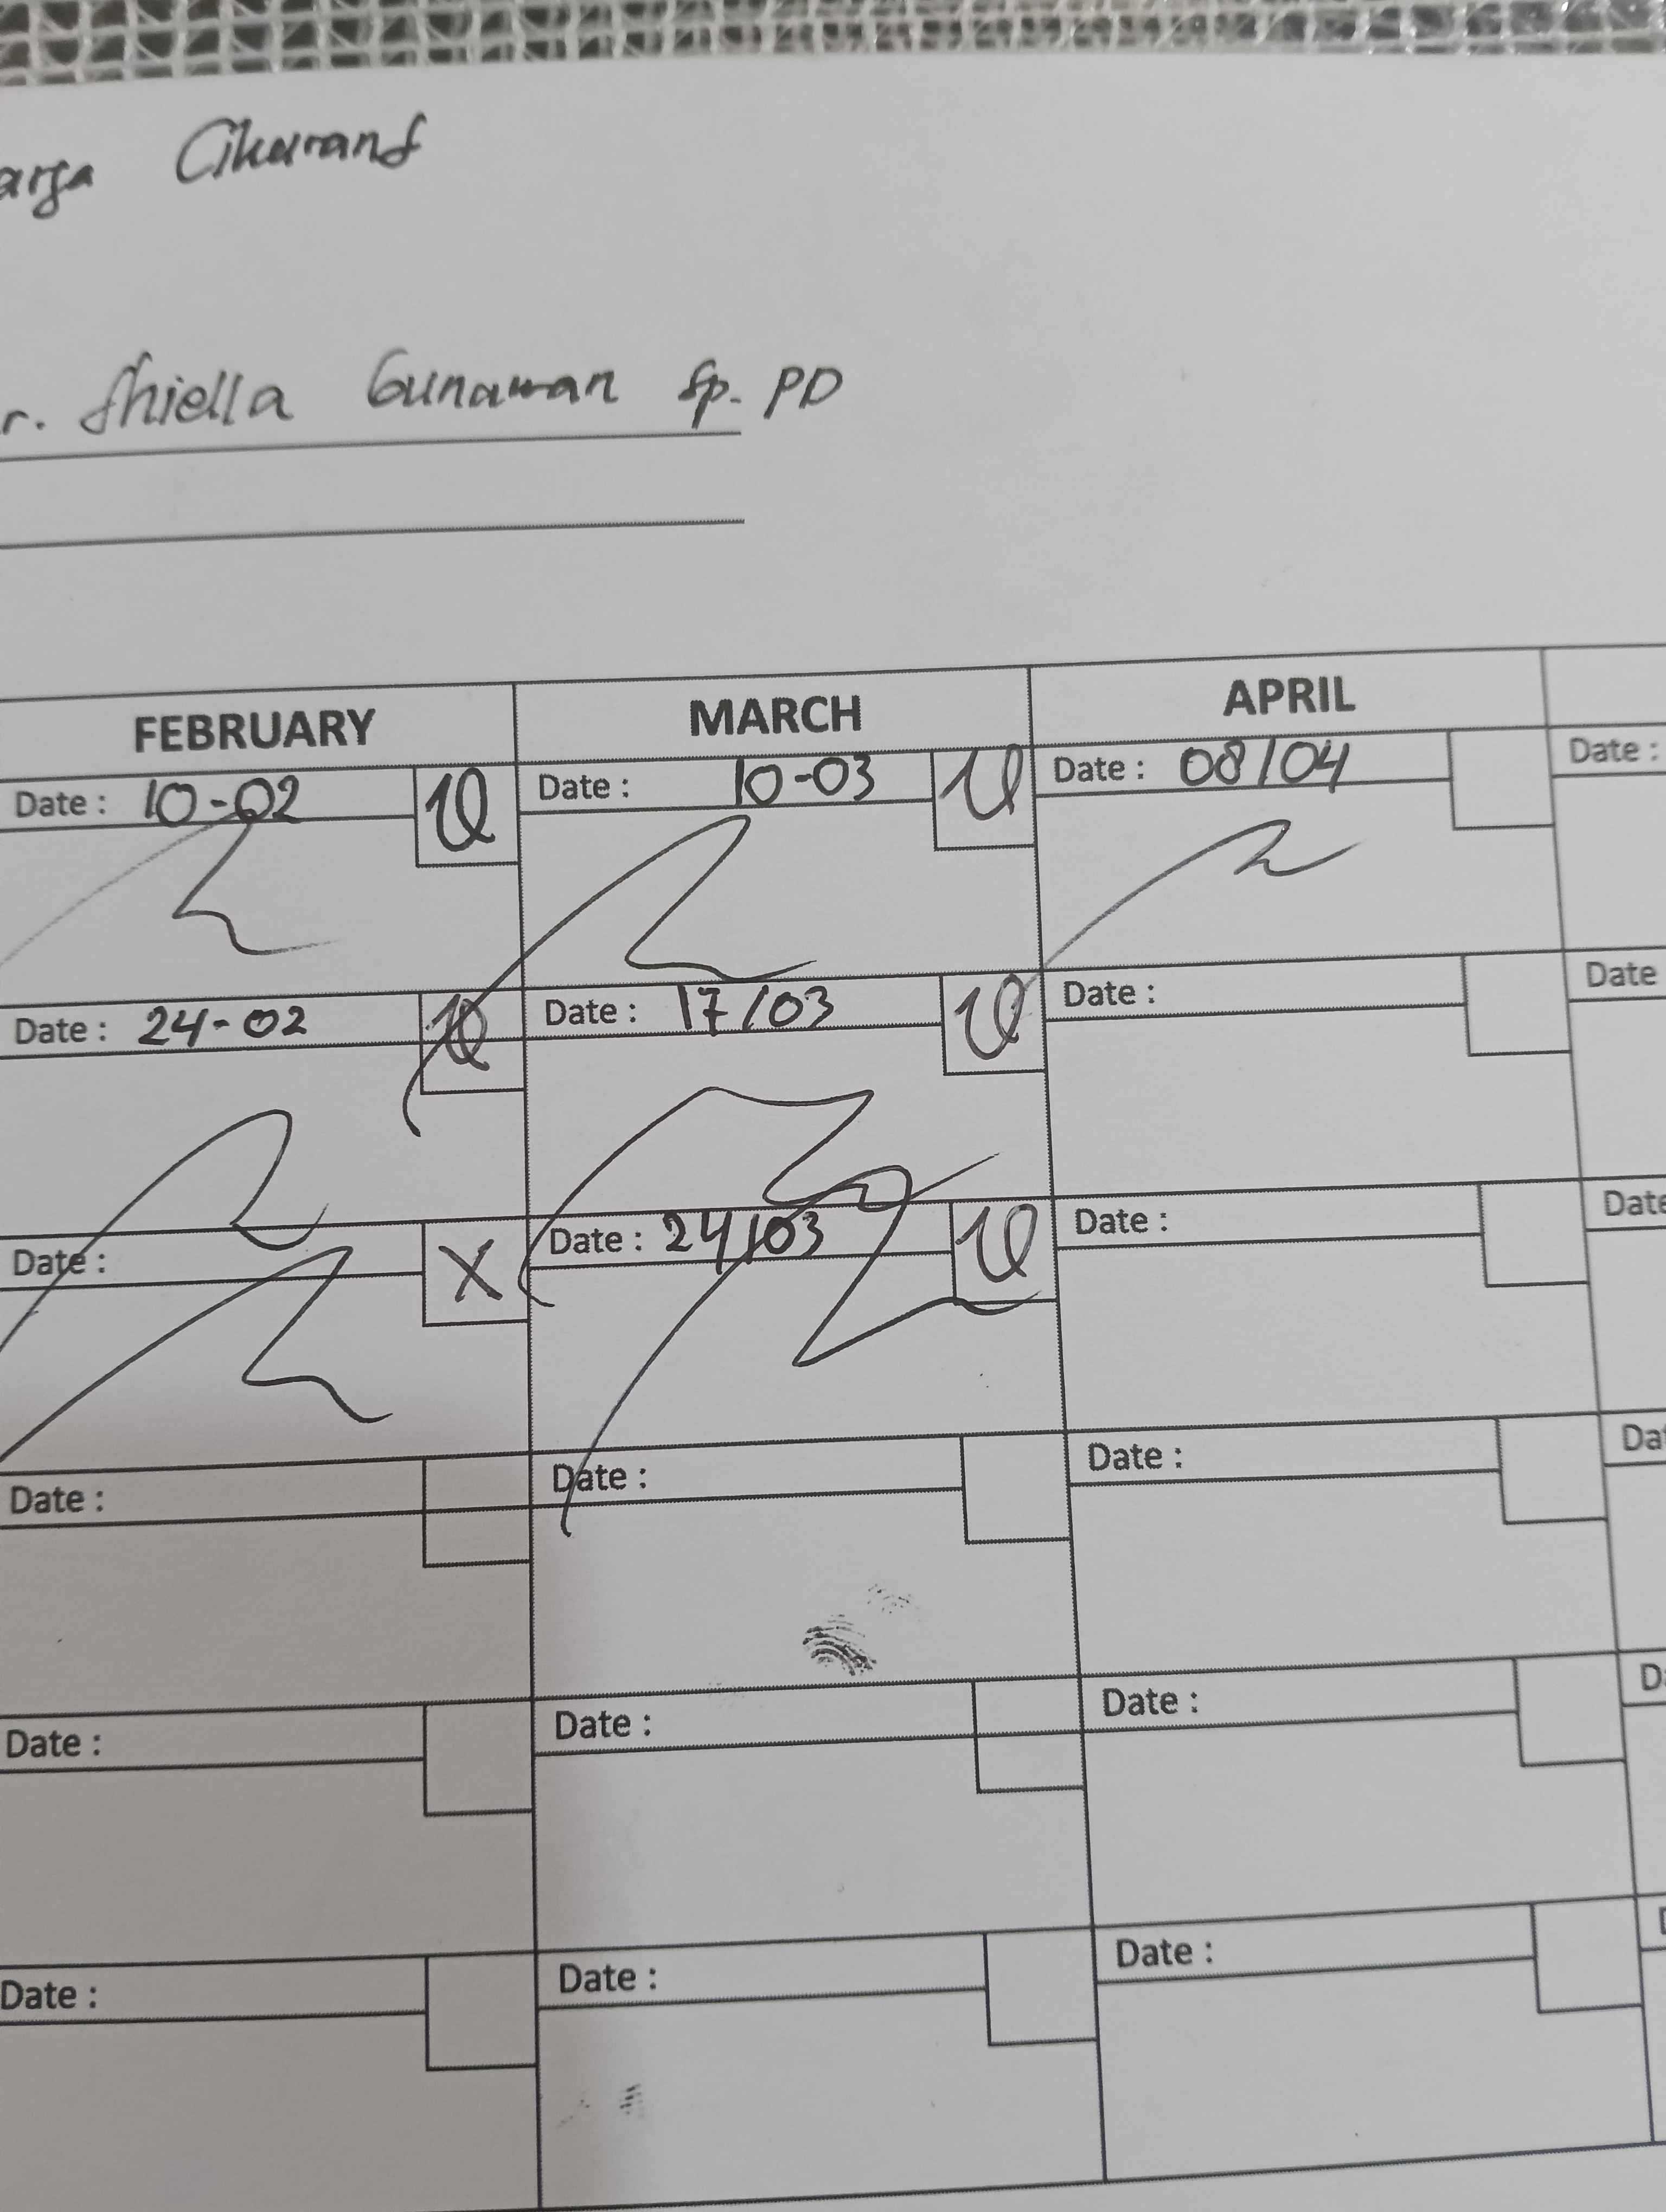 arga Cikarang
r. Shiella Gunawan Sp. PD
FEBRUARY MARCH APRIL
Date : 10-02 Date : 10-03 Date : 08/04 Date :
Date : 24-02 Date : 17/03 Date : Date
Date : X Date : 24/03 Date : Date
Date : Date : Date : Dat
Date : Date : Date : Da
Date : Date : Date : D